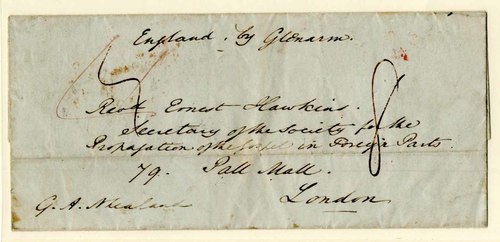 England. by Glenarm.
Revd. Ernest Hawkins.
Secretary of the Society for the
Propagation of the Gospel in Foreign Parts.
79. Pall Mall.
London
G. A.
8